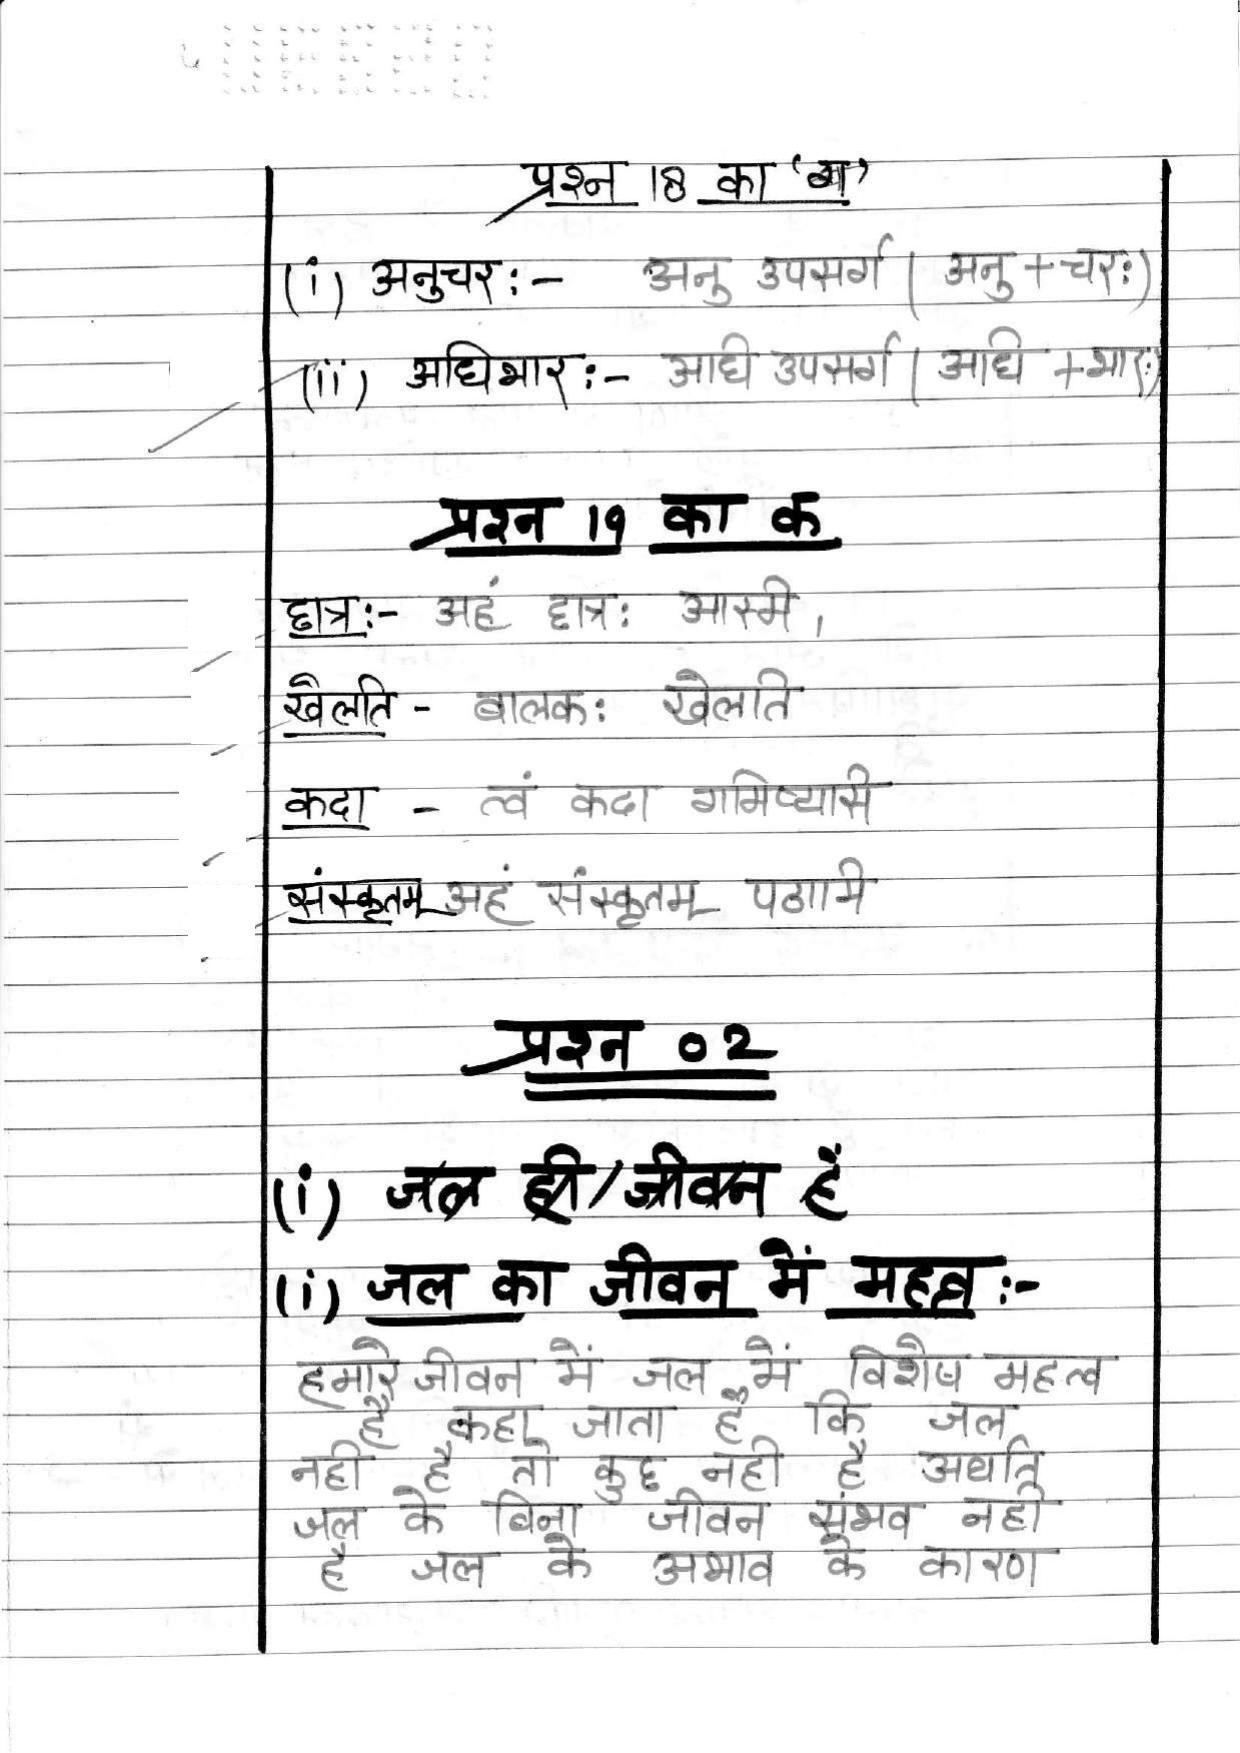 प्रश्न 18 का 'ब'
(i) अनुचर :- अनु उपसर्ग ( अनु + चरः)
(ii) अधिभार :- अधि उपसर्ग ( अधि + भारः)
प्रश्न 19 का क
छात्रः- अहं छात्रः अस्मि,
खेलति - बालकः खेलति
कदा - त्वं कदा गमिष्यसि
संस्कृतम् अहं संस्कृतम् पठामि
प्रश्न 02
(i) जल ही / जीवन हैं
(i) जल का जीवन में महत्व :-
हमारे जीवन में जल में विशेष महत्व
है कहा जाता है कि जल
नही है तो कुछ नही है अर्थात
जल के बिना जीवन संभव नही
है जल के अभाव के कारण